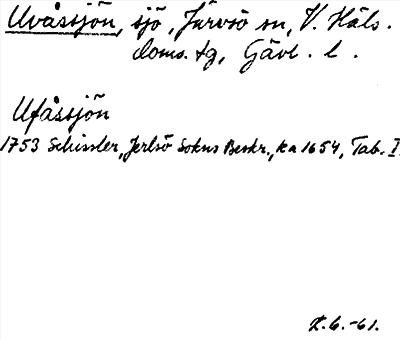 Uvåssjön, sjö, Järvsö sn, V. Häls.
doms. tg, Gävl. l.
Ufåssjön
1753 Schissler, Jerlsö Sokns Beskr., ka 1654, Tab. I.
6.-61.